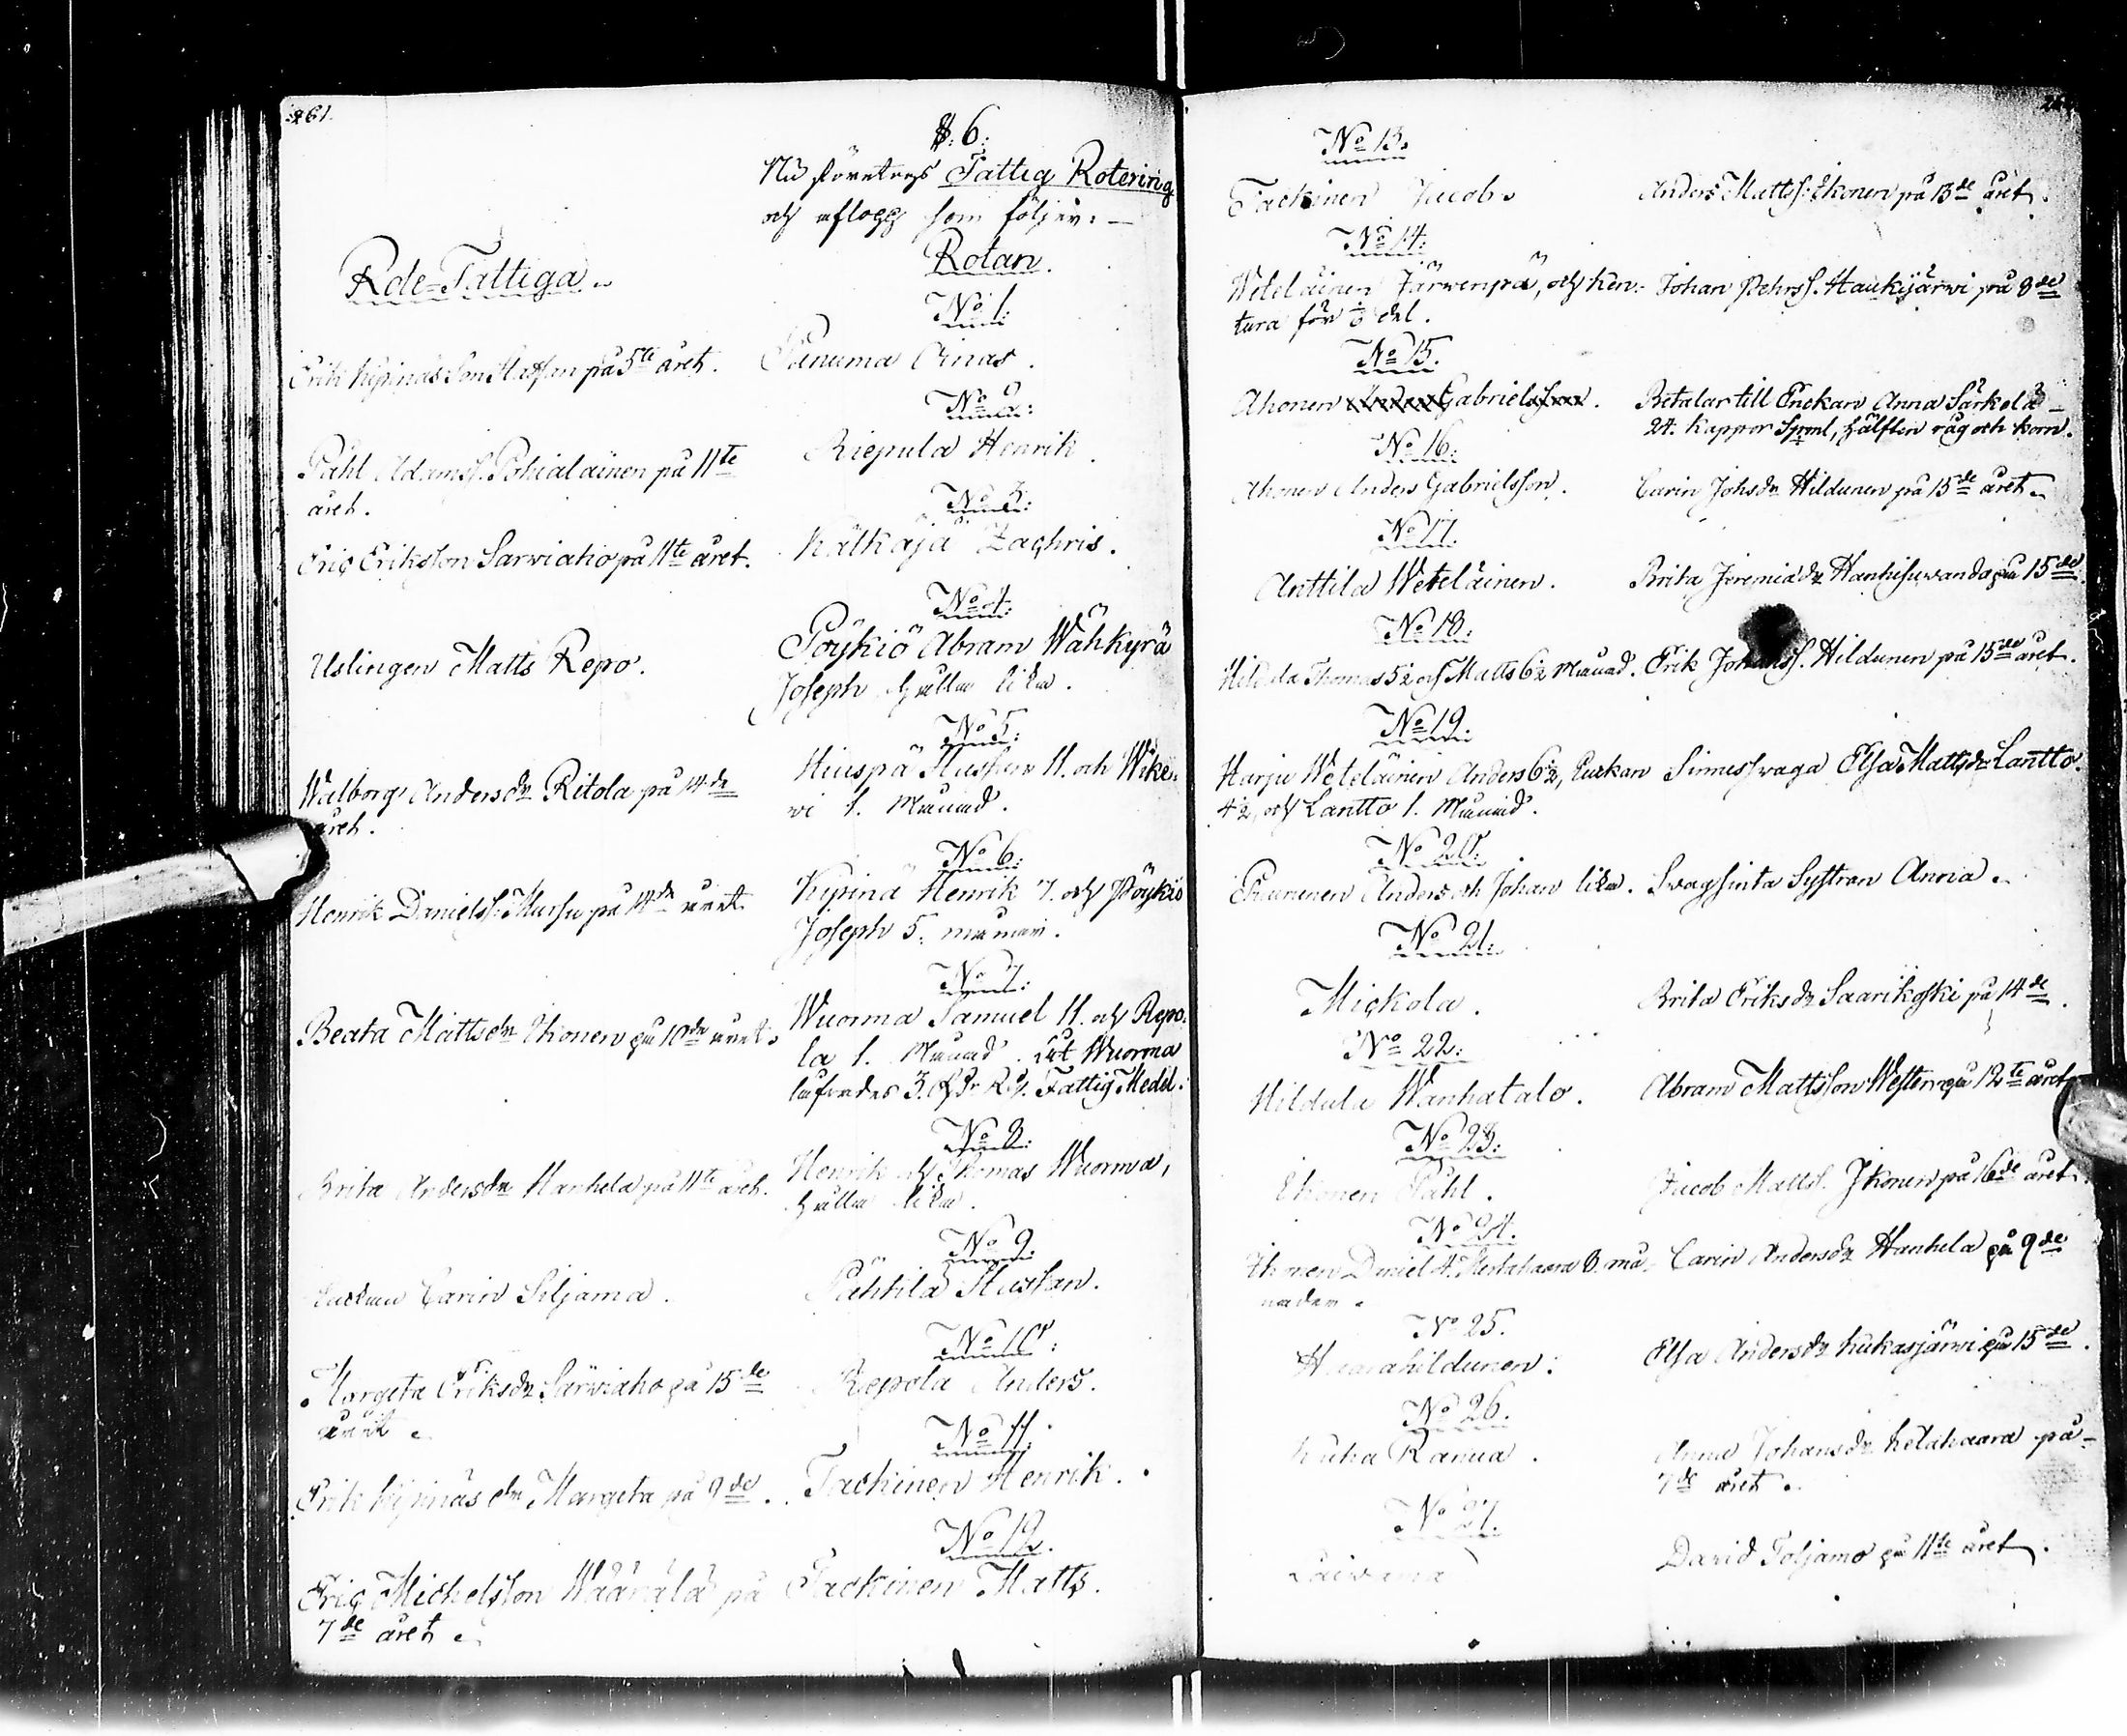 261.
§. 6:
Nu företogs Fattig Rotering
och aflogg som följer: —
Rote-Fattiga
Rotan.
No 1.
Erik Kypinäs Son Staffan på 5te året.
Panuma Ainas.
No 2:
Påhl Adamss. Pohialainen på 11te
året.
Riepula Henrik.
No 3:
Eric Eriksson Sarwiaho på 11te året.
Kälkäjä Zachris.
No 4:
Uslingen Matts Repo.
Pöykiö Abram Wähkyrä
Joseph hälla lika.
No 5:
Walborg Andersdr Ritola på 14de
året.
Hiuspä Staffan 11. och Wiken
wi 1. Månad.
No 6:
Henrik Danielss. Mursu på 14de året.
Kypinä Henrik 7. och Pöykiö
Joseph 5. månan.
No 7:
Beata Mattsdr Ikonen på 10de året.
Wuorma Samuel 11. och Repo-
la 1. Månad. Åt Wuorma
Fattig Medel:
No 8:
Brita Andersdr Hanhela på 11te året.
Henrik och Thomas Wuorma,
hälla lika.
No 9:
Enckan Carin Siljama.
Pähkilä Staffan.
No 10:
Margeta Eriksdr Särwiaho på 15de
året
Repola Anders.
No 11.
Erik Kypinäs dr Margeta på 9de.
Tackinen Henrik.
No 12.
Eric Michelsson Määrälä på
7de året
Tackinen Matts.
No 13.
Tackinen Jacob.
Anders Mattss: Ikonen på 13de året.
No 14:
Weteläinen Järwenpä, och Ken-
tura för ⅓ del.
Johan Pehrss. Haukijärwi på 8de
No 15.
Ahonen Gabrielsson.
Betalar till Enckan Anna Särkelä
24. kappor Spml, hälften råg och korn.
No 16.
Ahonen Anders Gabrielsson.
Carin Johsdr Hildunen på 15de året
No 17.
Anttila Weteläinen.
Brita Jeremiadr Hanhisuwando på 15de
No 18.
Hildula Thomas 5½ och Matts 6½ Månad.
Erik Johanss. Hildunen på 15de året.
No 19.
Harju Weteläinen Anders 6½, Enckan
4½, och Lantto 1. Månad.
Sinnessvaga Elsa Mattsdr Lantto.
No 20.
Anders och Johan lika.
Svagsinta Systran Anna.
No 21.
Mickola.
Brita Eriksdr Saarikoski på 14de.
No 22.
Hildula Wanhatalo.
Abram Mattsson Westeri på 12te året
No 23.
Ikonen Påhl.
Jacob Matts. Ikonen på 16de året.
No 24.
Ikonen Daniel 4. Kertahaara 8. må-
nader.
Carin Andersdr Hanhela på 9de
No 25.
Haarahildunen:
Elsa Andersdr Lukasjärwi på 15de.
No 26.
Kuha Ranua.
Anna Johansdr Kelahaara på
7de året.
No 27.
Laiwana
David Toljamo på 11te året.